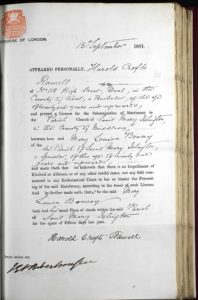 DIOCESE OF LONDON.
13th September 1881.
APPEARED PERSONALLY, Harold Crofts
Rawell of
No 118 High Street, Deal, in the
County of Kent, a Bachelor, of the age of
twenty one years and upwards,
and prayed a Licence for the Solemnization of Matrimony in
the Parish Church of Saint Mary Islington
in the County of Middlesex
between him and May Louisa Bonny
of the
Parish of Saint Mary Islington,
a Spinster, of the age of twenty one
years and upwards
and made Oath that he believeth that there is no Impediment of
Kindred or Alliance, or of any other lawful cause, nor any Suit com-
menced in any Ecclesiastical Court to bar or hinder the Proceed-
ing of the said Matrimony, according to the tenor of such Licence.
And he further made oath, that she the said May
Louisa Bonny
hath had her usual Place of Abode within the said Parish
of Saint Mary Islington
for the space of Fifteen days last past.
Harold Crofts Rawell
Sworn before me,